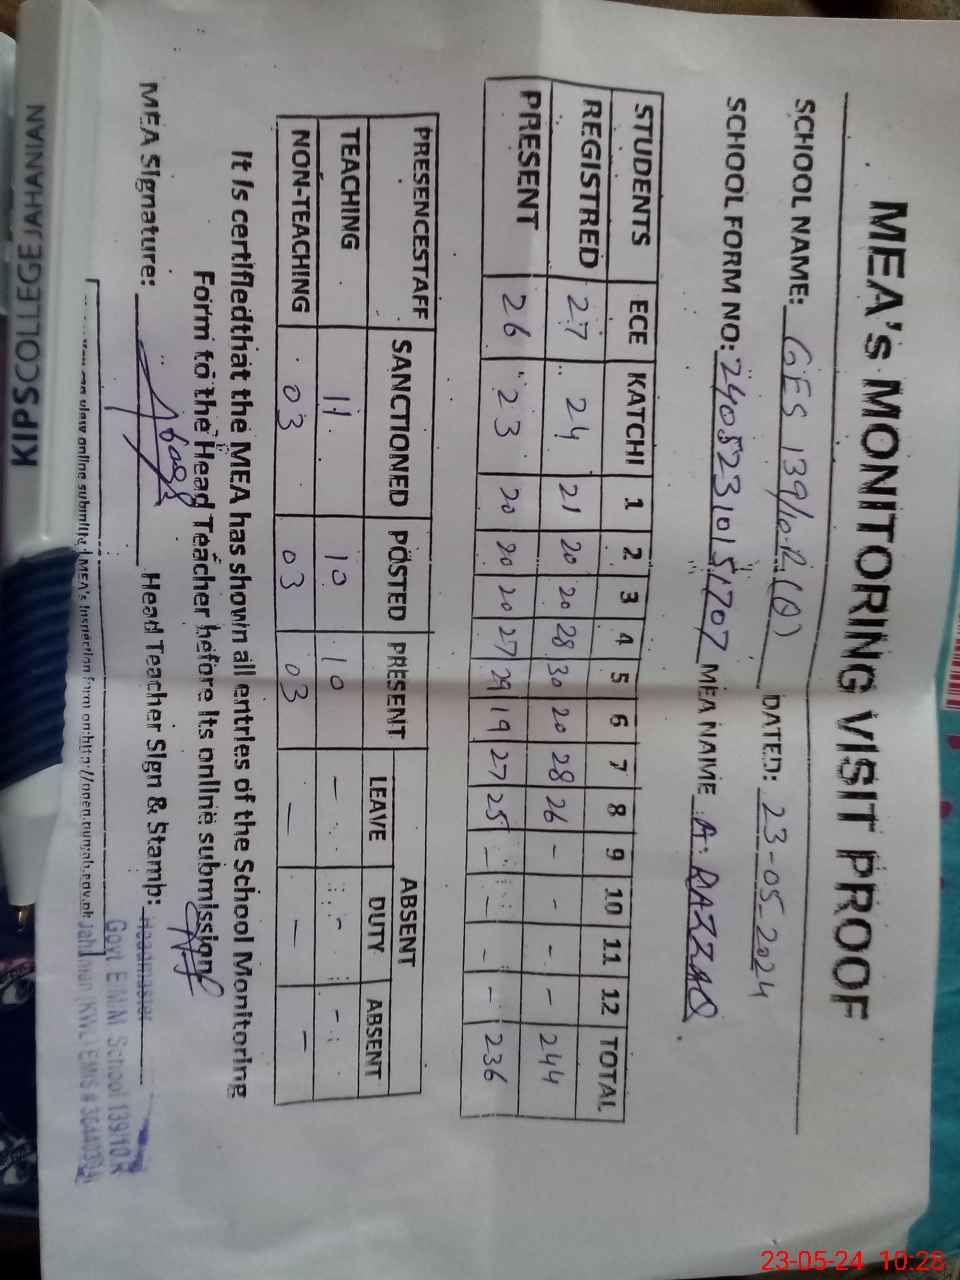 MEA's MONITORING VISIT PROOF
SCHOOL NAME: GES 139/10-R (Q) DATED: 23-05-2024
SCHOOL FORM NO: 24052310151707 MEA NAME A. RAZZAQ
STUDENTS ECE KATCHI 1 2 3 4 5 6 7 8 9 10 11 12 TOTAL
REGISTRED 27 24 21 20 20 28 30 20 28 26 - - - - 244
PRESENT 26 23 20 20 20 27 29 19 27 25 - - - - 236
PRESENCESTAFF SANCTIONED POSTED PRESENT ABSENT
LEAVE DUTY ABSENT
TEACHING 11 10 10 - - -
NON-TEACHING 03 03 03 - - -
It is certifiedthat the MEA has shown all entries of the School Monitoring
Form to the Head Teacher before its online submission
MEA Signature: Head Teacher Sign & Stamp:
Headmaster
Govt. E/M/M. School 139/10.R
Jahanian (KWL) EMIS #
view online submitted MEA's Inspection form on:http://open.punjab.gov.pk
KIPSCOLLEGE JAHANIAN
23-05-24 10:28